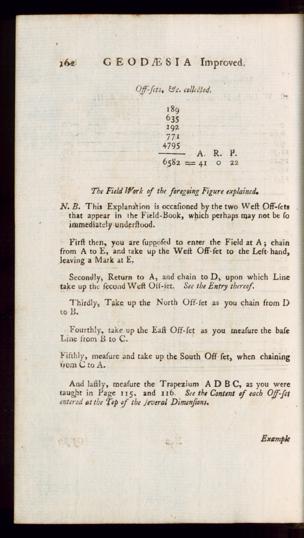 160 GEODÆSIA Improved.
Off-ſets, &c. collected.
189
635
192
771
4795
A. R. P.
6582 = 41 0 22
The Field Work of the foregoing Figure explained.
N. B. This Explanation is occaſioned by the two Weſt Off-ſets
that appear in the Field-Book, which perhaps may not be ſo
immediately underſtood.
Firſt then, you are ſuppoſed to enter the Field at A; chain
from A to E, and take up the Weſt Off-ſet to the Left-hand,
leaving a Mark at E.
Secondly, Return to A, and chain to D, upon which Line
take up the ſecond Weſt Off-ſet. See the Entry thereof.
Thirdly, Take up the North Off-ſet as you chain from D
to B.
Fourthly, take up the Eaſt Off-ſet as you meaſure the baſe
Line from B to C.
Fifthly, meaſure and take up the South Off ſet, when chaining
from C to A.
And laſtly, meaſure the Trapezium A D B C, as you were
taught in Page 115. and 116. See the Content of each Off-ſet
entered at the Top of the ſeveral Dimenſions.
Example